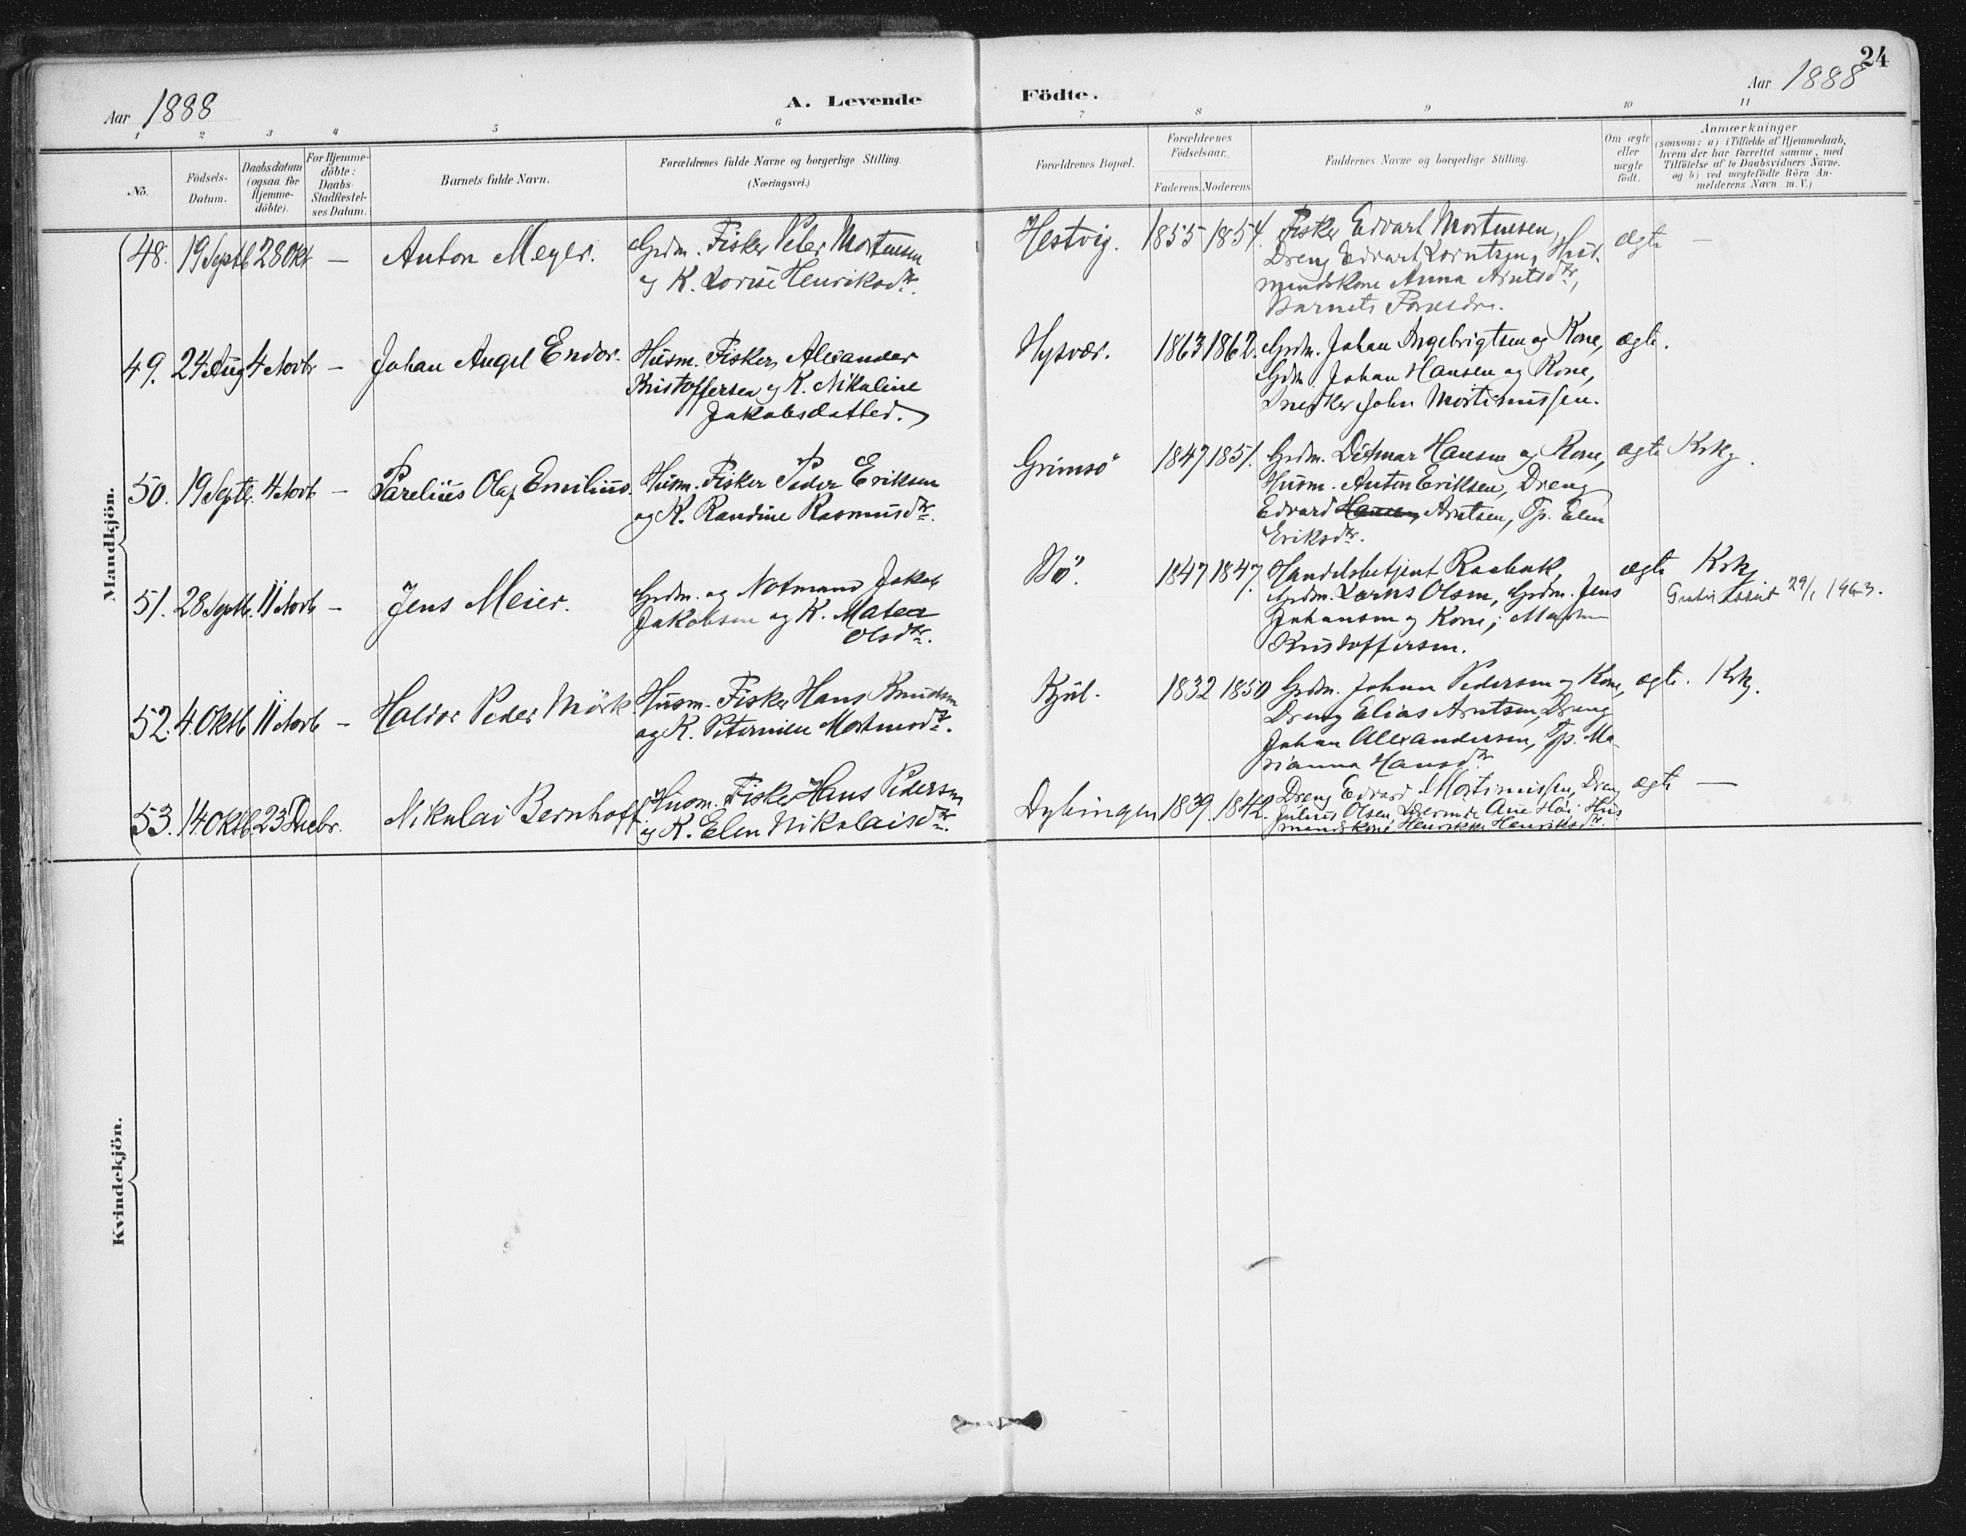 24
Aar 1888
A. Levende Födte.
Aar 1888
1 2 3 4 5 6 7 8 9 10 11
No.
Födsels-Datum.
Daabsdatum (ogsaa for Hjemme-döbte).
For Hjemme-döbte: Daabs-Stadfæstel-ses Datum.
Barnets fulde Navn.
Forældrenes fulde Navne og borgerlige Stilling.
(Næringsvei.)
Forældrenes Bopæl.
Forældrenes Födselsaar.
Faderens. Moderens.
Faddernes Navne og borgerlige Stilling.
Om ægte eller uægte födt.
Anmærkninger
(saasom: a) i Tilfælde af Hjemmedaab,
hvem der har forrettet samme, med
Tilföielse af to Daabsvidners Navne,
og b) ved uægtefödte Börn An-
melderens Navn m. V.)
Mandkjön.
48. 19 Septb 28 Okt — Anton Meyer.
Grdm. Fisker Peter Mortensen
og K. Lovise Henriksdtr.
Hestvig. 1855 1854.
Fisker Edvart Mortensen,
Dreng Edvart Lorntsen, Hus-
mandskone Anna Arntsdtr,
Barnets Forældre.
ægte —
49. 24 Aug 4 Novb — Johan Angel Endor.
Husm. Fisker Alexander
Kristoffersen og K. Nikoline
Jakobsdatter.
Hysvær. 1863 1862.
Grdm. Johan Ingebrigtsen og Kone,
Grdm. Johan Hansen og Kone,
Snedker John Mortinussen.
ægte.
50. 19 Septb. 4 Novb — Parelius Olaf Emilius.
Husm. Fisker Peder Eriksen
og K. Randine Rasmusdtr.
Grimsö 1847 1851.
Grdm. Ditmar Hansen og Kone,
Husm. Anton Eriksen, Dreng
Edvard Hansen, Arntsen, Tp. Elen
Eriksdtr.
ægte Krkj.
51. 28 Septb. 11 Novb — Jens Meier.
Grdm. og Notmand Jakob
Jakobsen og K. Matea
Olsdtr.
Bö. 1847 1847.
Handelsbetjent
Grdm. Lorns Olsen, Grdm. Jens
Johansen og Kone,
Kristoffersen.
ægte Krkj
29/1 1963.
52. 4 Oktb 11 Novb — Haldor Peder Mörk.
Husm. Fisker Hans Knudsen
og K. Peternille
Kjul. 1832 1850
Grdm. Johan Pedersen og Kone,
Dreng Elias Arntsen, Dreng
Johan Alexandersen, Tp. Ma-
rianna Hansdtr.
ægte. Krkj.
53. 14 Oktb. 23 Decbr. Nikolai Bernhoff.
Husm. Fisker Hans Pedersen
og K. Elen Nikolaisdtr.
Dybingen 1839. 1842.
Dreng Edvard Mortinussen, Dreng
Julius Olsen, Hus
mandskone Henrikke Henriksdtr.
ægte —
Kvindekjön.